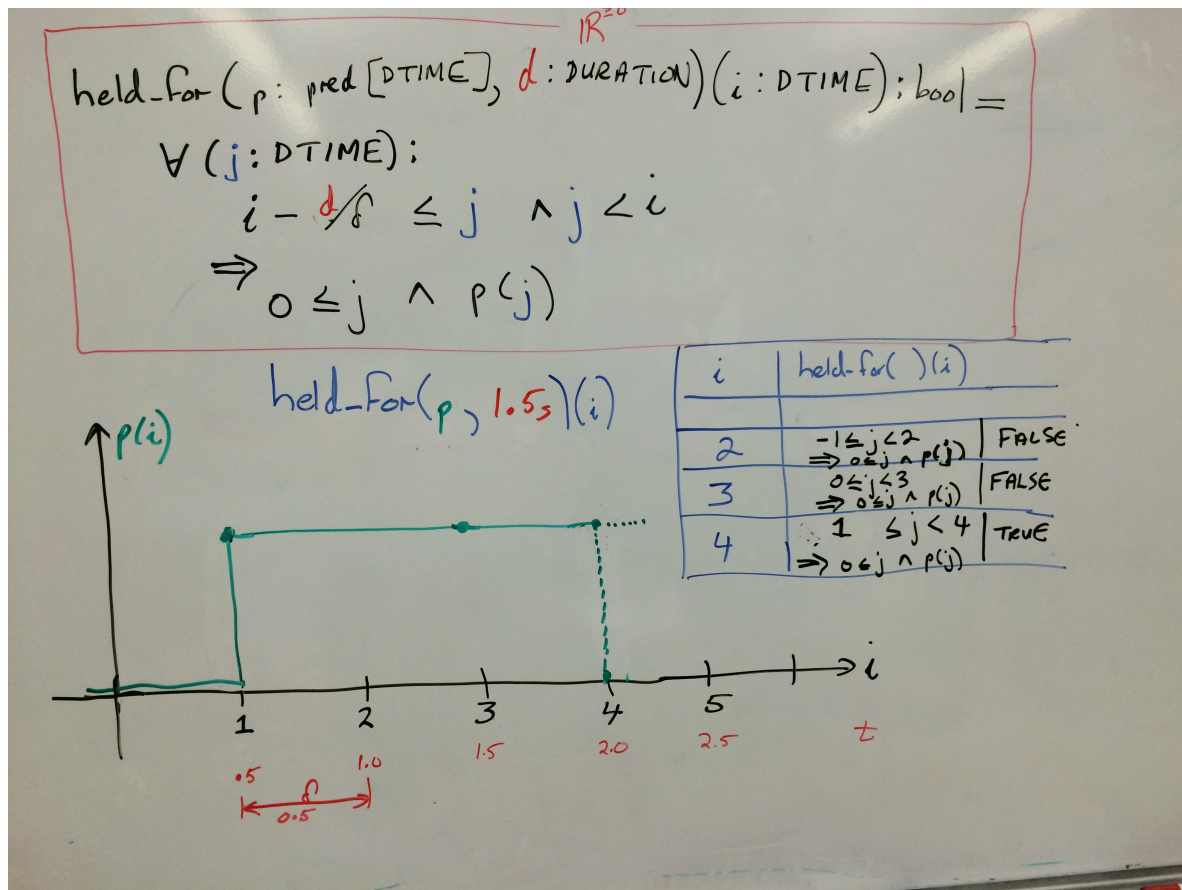 ℝ≥0
held_for(p: pred[DTIME], d: DURATION)(i: DTIME): bool =
∀(j: DTIME):
i - d/δ ≤ j ∧ j < i
⇒
0 ≤ j ∧ p(j)
held_for(p, 1.5s)(i)
i held-for( )(i)
2 -1 ≤ j < 2 FALSE
⇒ 0 ≤ j ∧ p(j)
3 0 ≤ j < 3 FALSE
⇒ 0 ≤ j ∧ p(j)
4 1 ≤ j < 4 TRUE
⇒ 0 ≤ j ∧ p(j)
p(i)
i
1 2 3 4 5
.5 1.0 1.5 2.0 2.5 t
δ
0.5